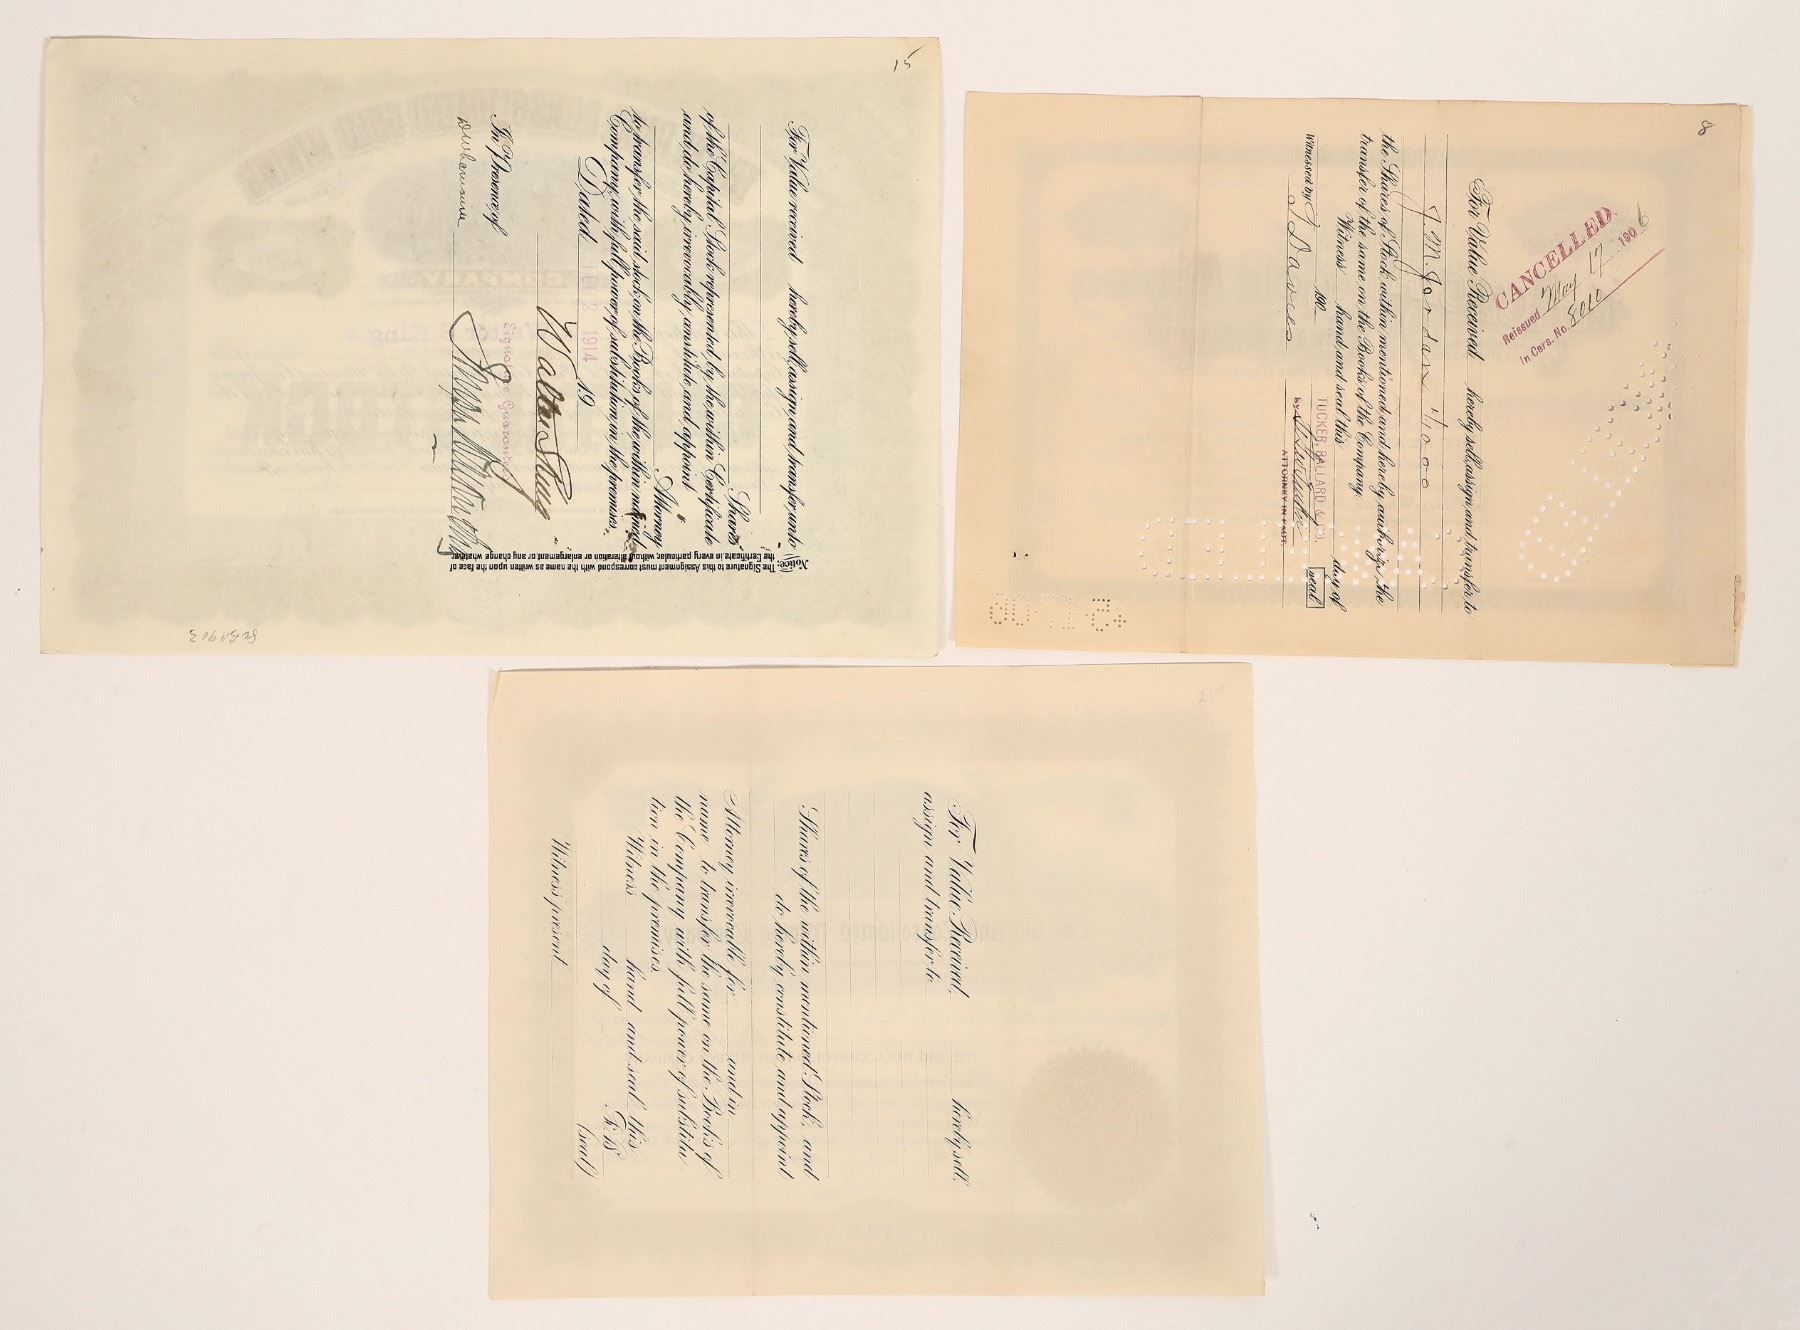 15
For Value received hereby sell, assign, and transfer, unto
Shares
of the Capital Stock represented by the within Certificate
and do hereby irrevocably constitute and appoint
Attorney
to transfer the said stock on the Books of the within named
Company, with full power of substitution in the premises.
Dated 2 1914 19
Walter S King
In Presence of
Signature Guaranteed
Notice: The Signature to this Assignment must correspond with the name as written upon the face of
the Certificate in every particular, without alteration or enlargement or any change whatever.
8
CANCELLED
Reissued May 17 1906
In Cers. No. 8010
For Value Received hereby sell, assign and transfer to
J. M. Jordan 1/1000
the Shares of Stock within mentioned and hereby authorize the
transfer of the same on the Books of the Company
Witness hand and seal this day of
190
Witnessed by
TUCKER, BALLARD & CO.
By
ATTORNEY IN FACT.
seal
CANCELLED
25
For Value Received, hereby sell,
assign and transfer to
Shares of the within mentioned Stock, and
do hereby constitute and appoint
Attorney irrevocable for and in
name to transfer the same on the Books of
the Company with full power of substitu-
tion in the premises
Witness hand and seal this
day of A.D. 18
(seal)
Witness present